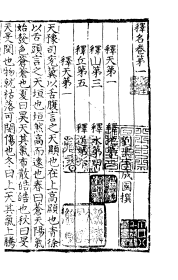 釋名卷第一
劉熙字成國撰
釋天第一
釋山第三
釋丘第五
釋天第一
天豫司兗冀以舌腹言之天顯也在上高顯也青徐
以舌頭言之天坦也坦然高而遠也春曰蒼天陽氣
始發色蒼蒼也夏曰昊天其氣布散皓皓也秋曰旻
天旻閔也物就枯落可閔傷也冬曰上天其氣上騰